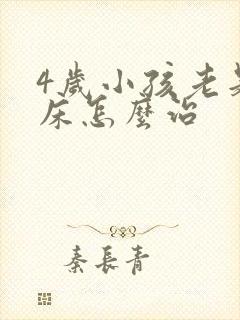 4歲小孩老是
床怎麼治
秦長青